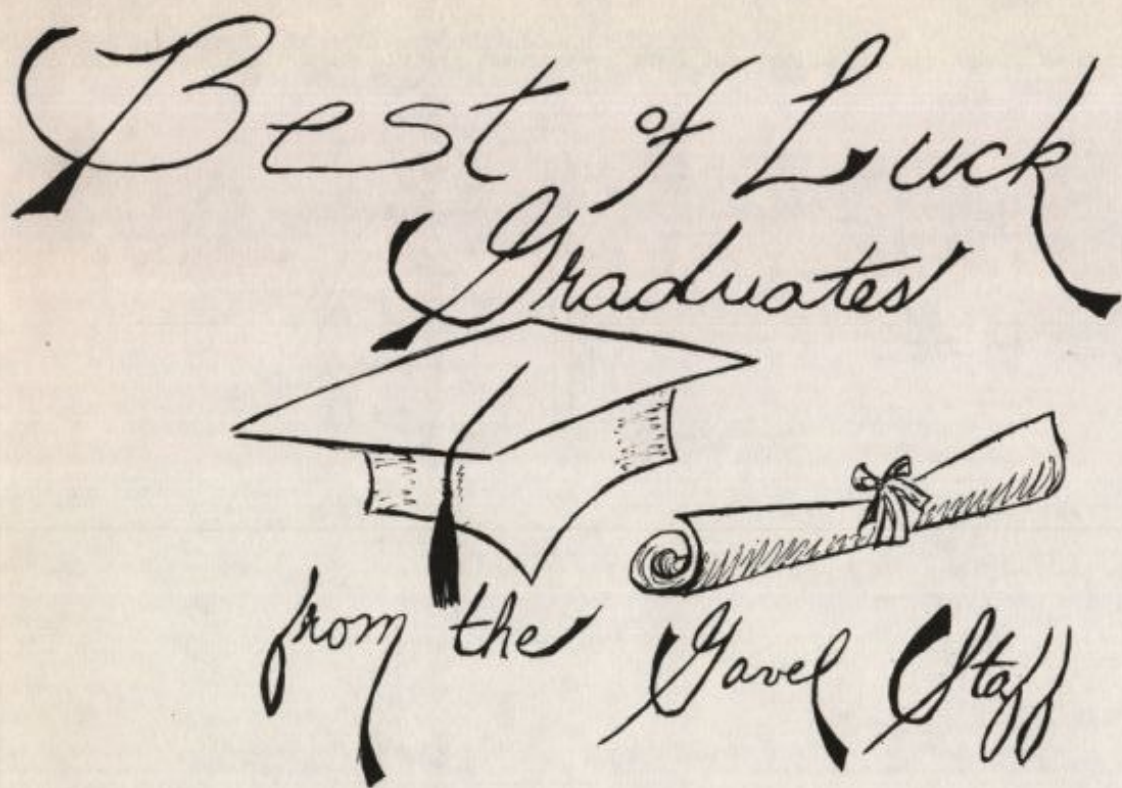 Best of Luck
Graduates
from the Gavel Staff